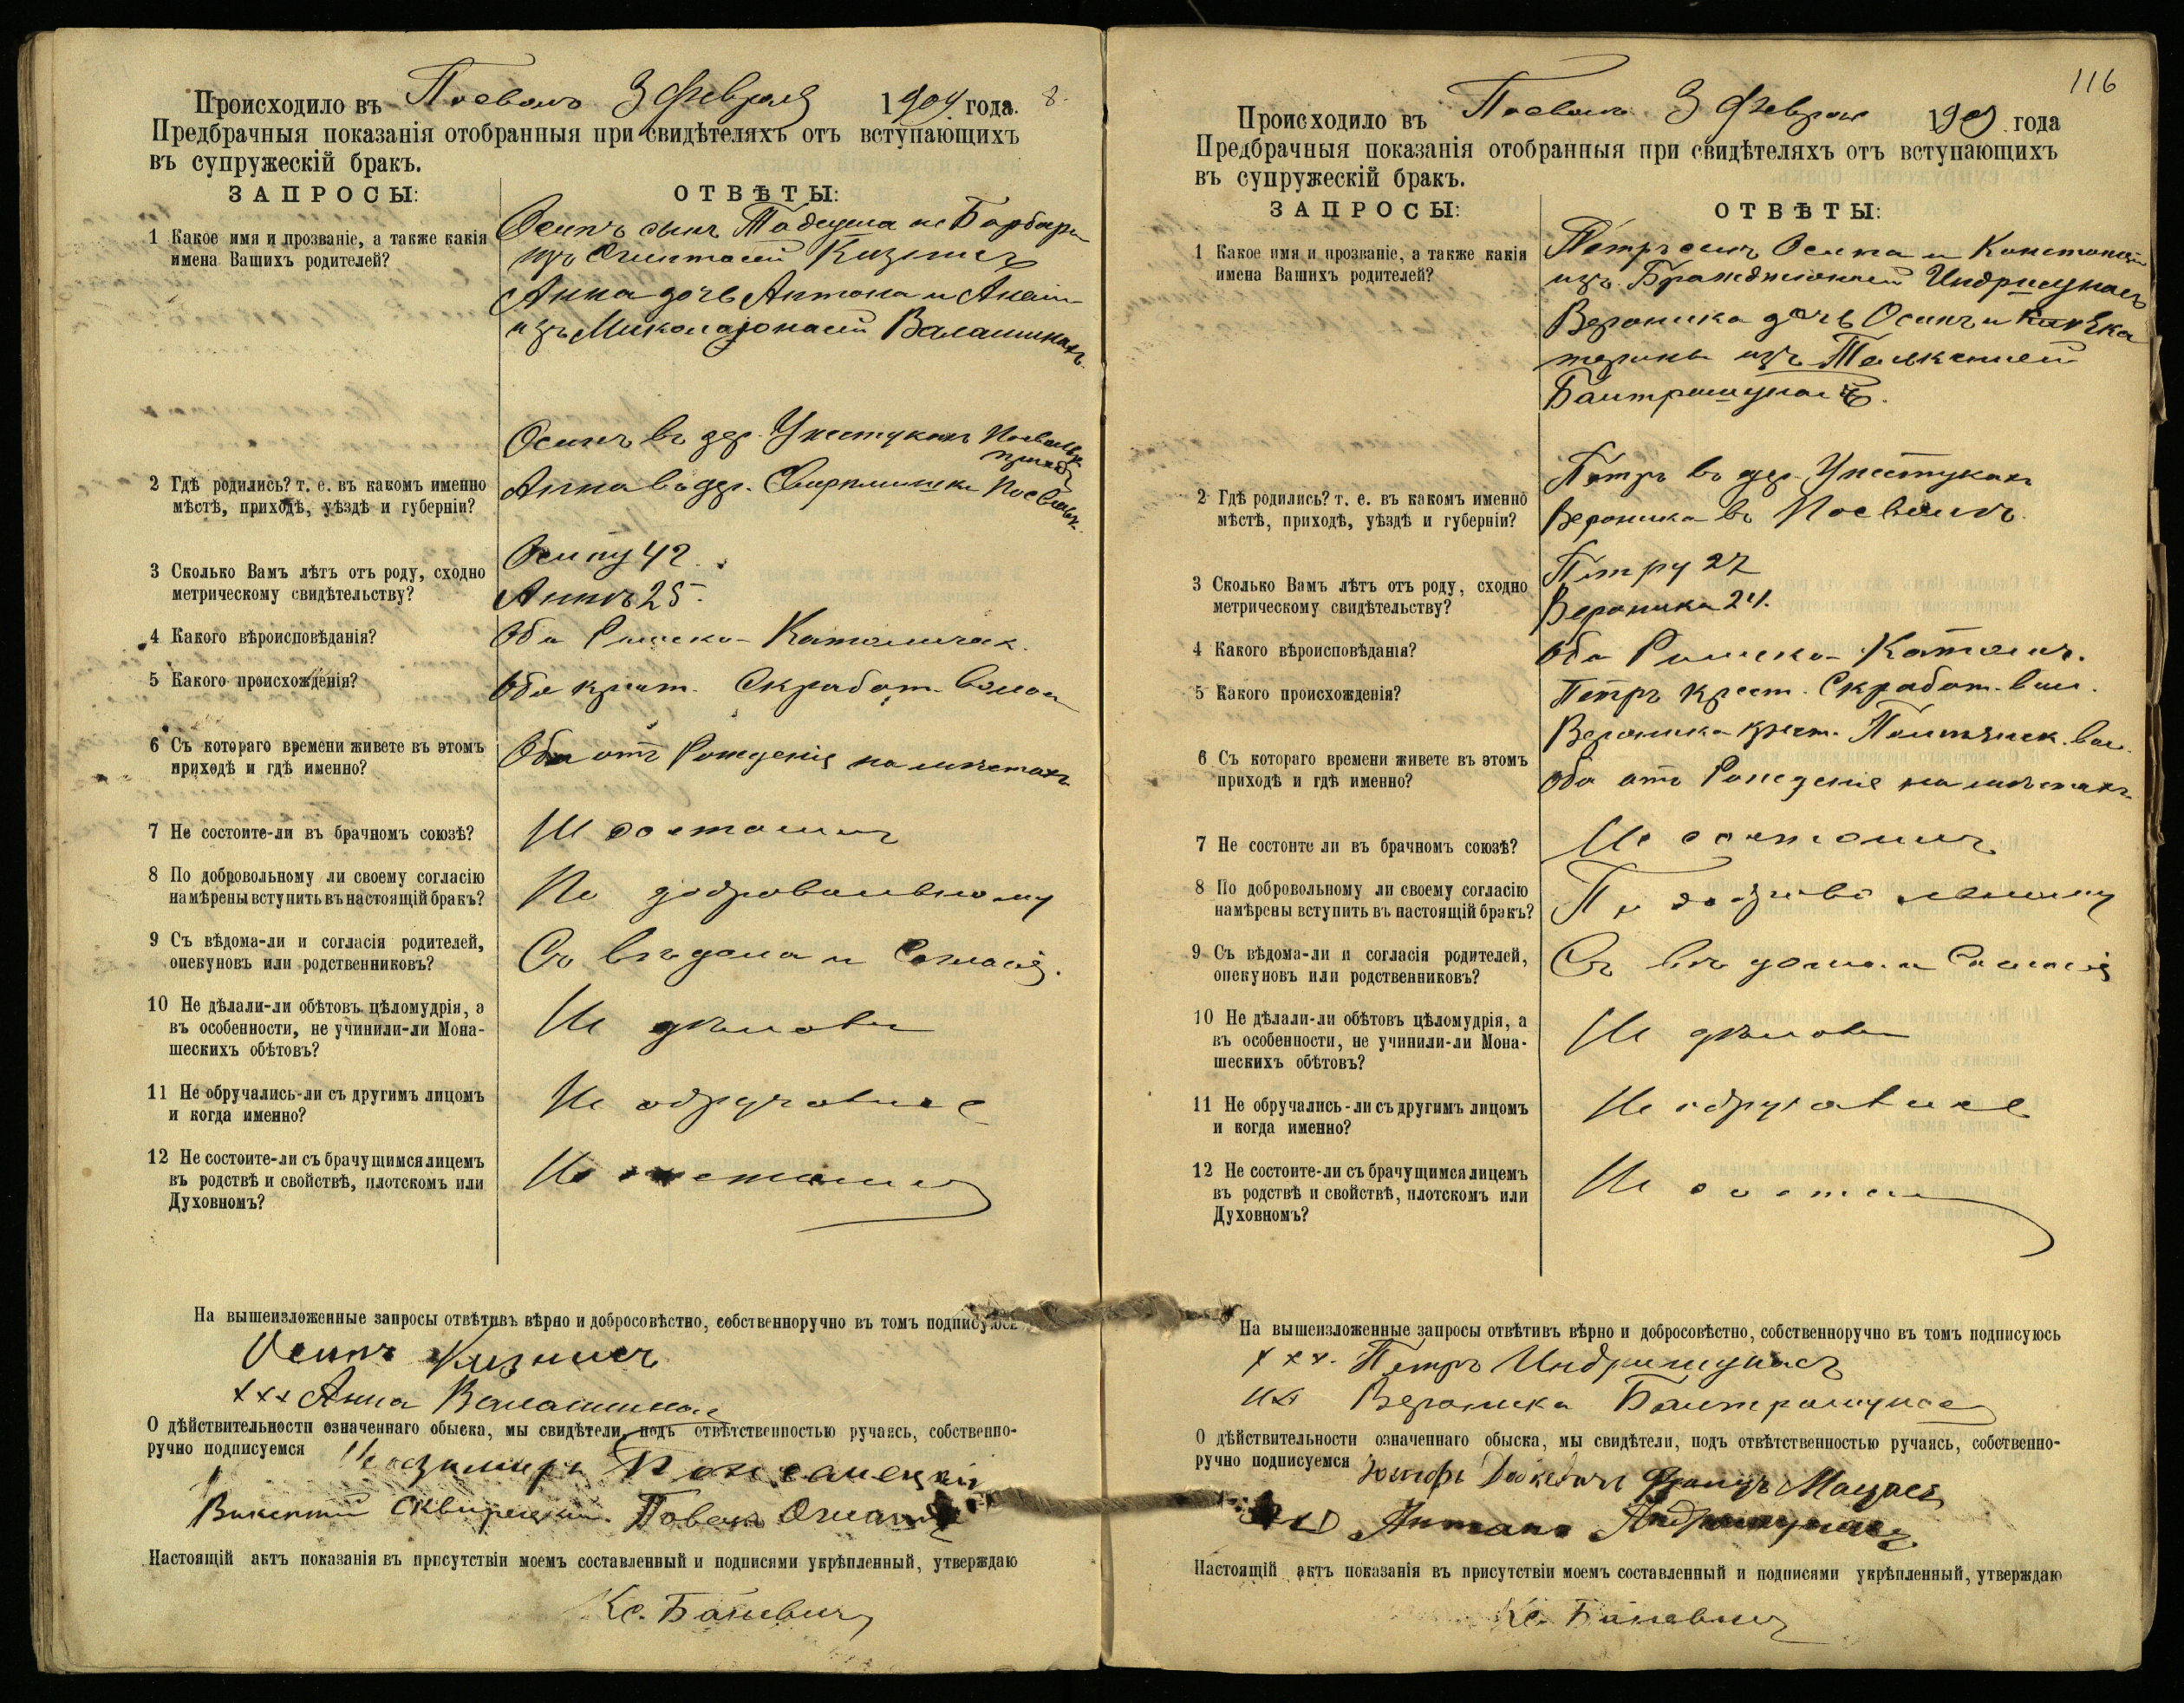 Происходило въ Посволь 3 Февраля 1904 года. 8.
Предбрачныя показанія отобранныя при свидѣтеляхъ отъ вступающихъ
въ супружескій бракъ.
ЗАПРОСЫ:
ОТВѢТЫ:
1 Какое имя и прозваніе, а также какія
имена Вашихъ родителей?
Осипъ сынъ Тадеуша и Барбары
изъ
Анна дочь Антона и
изъ Миколаюнасъ Валашинасъ
2 Гдѣ родились? т. е. въ какомъ именно
мѣстѣ, приходѣ, уѣздѣ и губерніи?
Осипъ въ дер. Унстукахъ
Анна въ дер.
3 Сколько Вамъ лѣтъ отъ роду, сходно
метрическому свидѣтельству?
Осипу 42.
Аннѣ 25.
4 Какого вѣроисповѣданія?
Оба Римско-Католичек.
5 Какого происхожденія?
Оба крест. Скработ. волос
6 Съ котораго времени живете въ этомъ
приходѣ и гдѣ именно?
Оба отъ Рожденія на мѣстахъ
7 Не состоите-ли въ брачномъ союзѣ?
Не состоимъ
8 По добровольному ли своему согласію
намѣрены вступить въ настоящій бракъ?
По добровольному
9 Съ вѣдома-ли и согласія родителей,
опекуновъ или родственниковъ?
Съ вѣдома и Согласія.
10 Не дѣлали-ли обѣтовъ цѣломудрія, а
въ особенности, не учинили-ли Мона-
шескихъ обѣтовъ?
Не дѣлали
11 Не обручались-ли съ другимъ лицомъ
и когда именно?
Не обручались
12 Не состоите-ли съ брачущимся лицемъ
въ родствѣ и свойствѣ, плотскомъ или
Духовномъ?
Не состоимъ
На вышеизложенные запросы отвѣтивъ вѣрно и добросовѣстно, собственноручно въ томъ подписуюсь
Осипъ
+++ Анна Валашинас
О дѣйствительности означеннаго обыска, мы свидѣтели, подъ отвѣтственностью ручаясь, собственно-
ручно подписуемся
Викентій Сквирецкій.
Настоящій актъ показанія въ присутствіи моемъ составленный и подписями укрѣпленный, утверждаю
Кс. Баневичъ
116
Происходило въ Посволь 3 Февраля 190 года
Предбрачныя показанія отобранныя при свидѣтеляхъ отъ вступающихъ
въ супружескій бракъ.
ЗАПРОСЫ:
ОТВѢТЫ:
1 Какое имя и прозваніе, а также какія
имена Вашихъ родителей?
Петръ сынъ Осипа и Констанціи
изъ Индришунасъ
Вероника дочь Осипъ и Ека
терины изъ
Балтрашунасъ.
2 Гдѣ родились? т. е. въ какомъ именно
мѣстѣ, приходѣ, уѣздѣ и губерніи?
Петръ въ дер. Унстукахъ
Вероника въ Посволь.
3 Сколько Вамъ лѣтъ отъ роду, сходно
метрическому свидѣтельству?
Петру 27
Вероника 24.
4 Какого вѣроисповѣданія?
Оба Римско-Католич.
5 Какого происхожденія?
Петръ крест. Скработ. вол.
Вероника крест. вол.
6 Съ котораго времени живете въ этомъ
приходѣ и гдѣ именно?
Оба отъ Рожденіе на мѣстахъ
7 Не состоите ли въ брачномъ союзѣ?
Не состоимъ
8 По добровольному ли своему согласію
намѣрены вступить въ настоящій бракъ?
По добровольному
9 Съ вѣдома-ли и согласія родителей,
опекуновъ или родственниковъ?
Съ вѣдома и Согласія
10 Не дѣлали-ли обѣтовъ цѣломудрія, а
въ особенности, не учинили-ли Мона-
шескихъ обѣтовъ?
Не дѣлали
11 Не обручались-ли съ другимъ лицомъ
и когда именно?
Не обручались
12 Не состоите-ли съ брачущимся лицемъ
въ родствѣ и свойствѣ, плотскомъ или
Духовномъ?
Не состоим
На вышеизложенные запросы отвѣтивъ вѣрно и добросовѣстно, собственноручно въ томъ подписуюсь
+++. Петръ Индришунасъ
Вероника Балтрашунас
О дѣйствительности означеннаго обыска, мы свидѣтели, подъ отвѣтственностью ручаясь, собственно-
ручно подписуемся
Антанъ
Настоящій актъ показанія въ присутствіи моемъ составленный и подписями укрѣпленный, утверждаю
Кс. Баневичъ